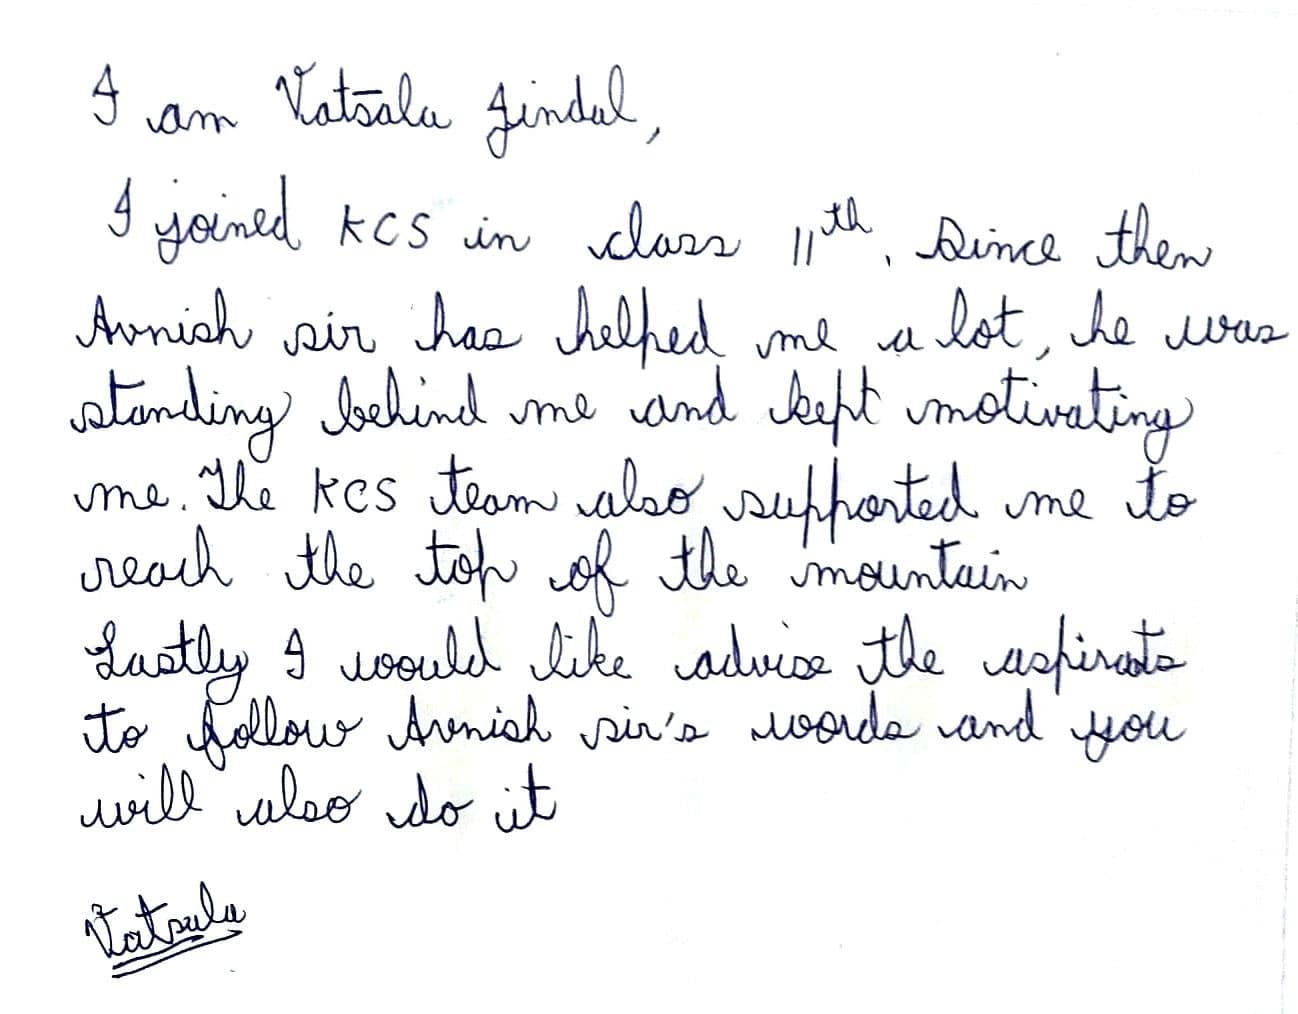 I am Vatsala Jindal,
I joined KCS in class 11th. Since then
Avnish sir has helped me a lot, he was
standing behind me and kept motivating
me. The KCS team also supported me to
reach the top of the mountain
Lastly I would like advise the aspirants
to follow Avnish sir's words and you
will also do it
Vatsala